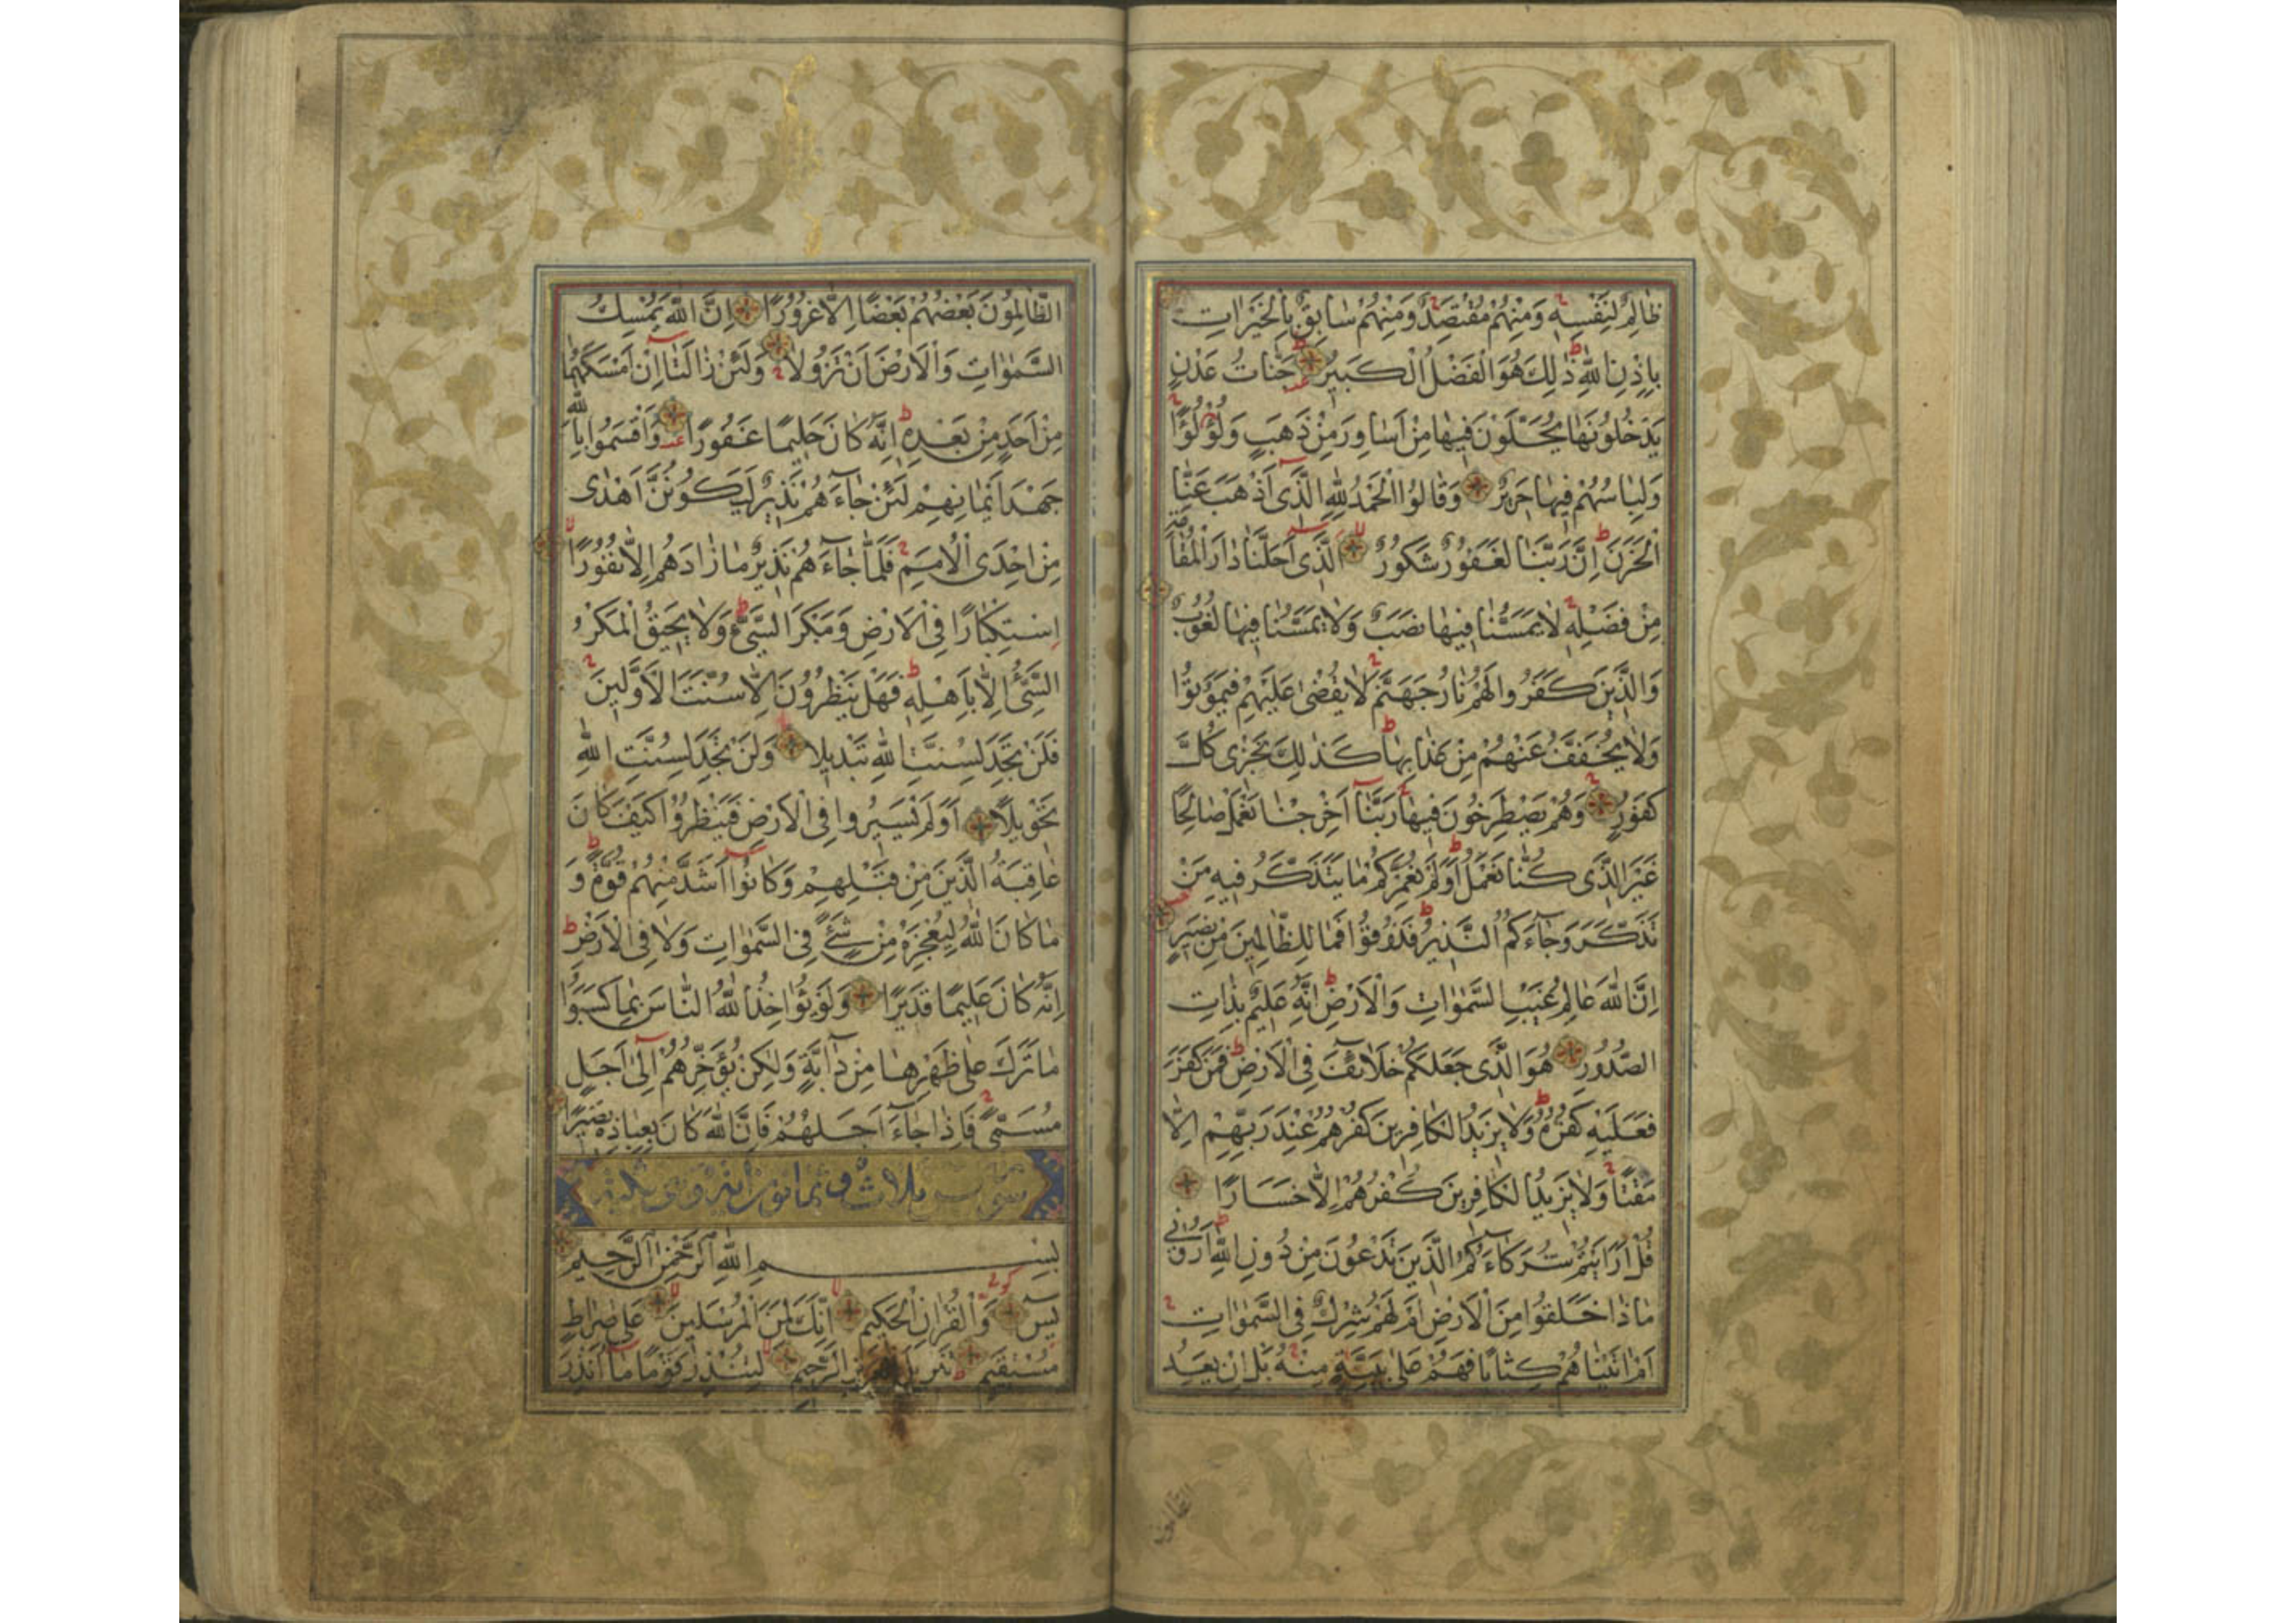 ظَالِمٌ لِنَفْسِهِ وَمِنْهُمْ مُقْتَصِدٌ وَمِنْهُمْ سَابِقٌ بِالْخَيْرَاتِ
بِإِذْنِ اللّٰهِ ذٰلِكَ هُوَ الْفَضْلُ الْكَبِيرُ جَنَّاتُ عَدْنٍ
يَدْخُلُونَهَا يُحَلَّوْنَ فِيهَا مِنْ أَسَاوِرَ مِنْ ذَهَبٍ وَلُؤْلُؤًا
وَلِبَاسُهُمْ فِيهَا حَرِيرٌ وَقَالُوا الْحَمْدُ لِلّٰهِ الَّذِى أَذْهَبَ عَنَّا
الْحَزَنَ إِنَّ رَبَّنَا لَغَفُورٌ شَكُورٌ الَّذِى أَحَلَّنَا دَارَ الْمُقَامَةِ
مِنْ فَضْلِهِ لَا يَمَسُّنَا فِيهَا نَصَبٌ وَلَا يَمَسُّنَا فِيهَا لُغُوبٌ
وَالَّذِينَ كَفَرُوا لَهُمْ نَارُ جَهَنَّمَ لَا يُقْضٰى عَلَيْهِمْ فَيَمُوتُوا
وَلَا يُخَفَّفُ عَنْهُمْ مِنْ عَذَابِهَا كَذٰلِكَ نَجْزِى كُلَّ
كَفُورٍ وَهُمْ يَصْطَرِخُونَ فِيهَا رَبَّنَا أَخْرِجْنَا نَعْمَلْ صَالِحًا
غَيْرَ الَّذِى كُنَّا نَعْمَلُ أَوَلَمْ نُعَمِّرْكُمْ مَا يَتَذَكَّرُ فِيهِ مَنْ
تَذَكَّرَ وَجَاءَكُمُ النَّذِيرُ فَذُوقُوا فَمَا لِلظَّالِمِينَ مِنْ نَصِيرٍ
إِنَّ اللّٰهَ عَالِمُ غَيْبِ السَّمٰوَاتِ وَالْأَرْضِ إِنَّهُ عَلِيمٌ بِذَاتِ
الصُّدُورِ هُوَ الَّذِى جَعَلَكُمْ خَلَائِفَ فِى الْأَرْضِ فَمَنْ كَفَرَ
فَعَلَيْهِ كُفْرُهُ وَلَا يَزِيدُ الْكَافِرِينَ كُفْرُهُمْ عِنْدَ رَبِّهِمْ إِلَّا
مَقْتًا وَلَا يَزِيدُ الْكَافِرِينَ كُفْرُهُمْ إِلَّا خَسَارًا
قُلْ أَرَأَيْتُمْ شُرَكَاءَكُمُ الَّذِينَ تَدْعُونَ مِنْ دُونِ اللّٰهِ أَرُونِى
مَاذَا خَلَقُوا مِنَ الْأَرْضِ أَمْ لَهُمْ شِرْكٌ فِى السَّمٰوَاتِ
أَمْ اٰتَيْنَاهُمْ كِتَابًا فَهُمْ عَلٰى بَيِّنَةٍ مِنْهُ بَلْ إِنْ يَعِدُ
الظَّالِمُونَ
الظَّالِمُونَ بَعْضُهُمْ بَعْضًا إِلَّا غُرُورًا إِنَّ اللّٰهَ يُمْسِكُ
السَّمٰوَاتِ وَالْأَرْضَ أَنْ تَزُولَا وَلَئِنْ زَالَتَا إِنْ أَمْسَكَهُمَا
مِنْ أَحَدٍ مِنْ بَعْدِهِ إِنَّهُ كَانَ حَلِيمًا غَفُورًا وَأَقْسَمُوا بِاللّٰهِ
جَهْدَ أَيْمَانِهِمْ لَئِنْ جَاءَهُمْ نَذِيرٌ لَيَكُونُنَّ أَهْدٰى
مِنْ إِحْدَى الْأُمَمِ فَلَمَّا جَاءَهُمْ نَذِيرٌ مَا زَادَهُمْ إِلَّا نُفُورًا
اِسْتِكْبَارًا فِى الْأَرْضِ وَمَكْرَ السَّيِّئِ وَلَا يَحِيقُ الْمَكْرُ
السَّيِّئُ إِلَّا بِأَهْلِهِ فَهَلْ يَنْظُرُونَ إِلَّا سُنَّتَ الْأَوَّلِينَ
فَلَنْ تَجِدَ لِسُنَّتِ اللّٰهِ تَبْدِيلًا وَلَنْ تَجِدَ لِسُنَّتِ اللّٰهِ
تَحْوِيلًا أَوَلَمْ يَسِيرُوا فِى الْأَرْضِ فَيَنْظُرُوا كَيْفَ كَانَ
عَاقِبَةُ الَّذِينَ مِنْ قَبْلِهِمْ وَكَانُوا أَشَدَّ مِنْهُمْ قُوَّةً وَ
مَا كَانَ اللّٰهُ لِيُعْجِزَهُ مِنْ شَيْءٍ فِى السَّمٰوَاتِ وَلَا فِى الْأَرْضِ
إِنَّهُ كَانَ عَلِيمًا قَدِيرًا وَلَوْ يُؤَاخِذُ اللّٰهُ النَّاسَ بِمَا كَسَبُوا
مَا تَرَكَ عَلٰى ظَهْرِهَا مِنْ دَابَّةٍ وَلٰكِنْ يُؤَخِّرُهُمْ إِلٰى أَجَلٍ
مُسَمًّى فَإِذَا جَاءَ أَجَلُهُمْ فَإِنَّ اللّٰهَ كَانَ بِعِبَادِهِ بَصِيرًا
ثلاث و ثمانون اية وهى مكية
بِسْمِ اللّٰهِ الرَّحْمٰنِ الرَّحِيمِ
يٰسٓ وَالْقُرْاٰنِ الْحَكِيمِ إِنَّكَ لَمِنَ الْمُرْسَلِينَ عَلٰى صِرَاطٍ
مُسْتَقِيمٍ تَنْزِيلَ الْعَزِيزِ الرَّحِيمِ لِتُنْذِرَ قَوْمًا مَا أُنْذِرَ